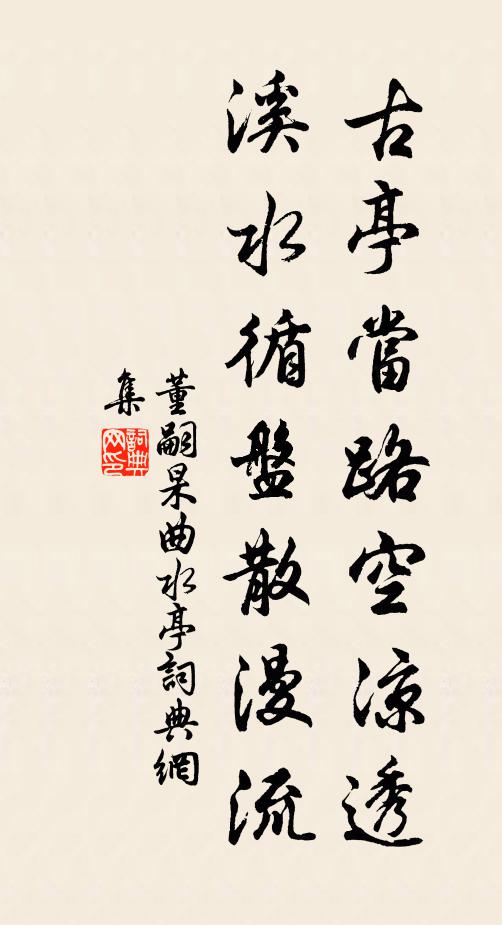 古亭當路空涼透
溪水循盤散漫流
董嗣杲曲水亭詞典網
集
詞典網印